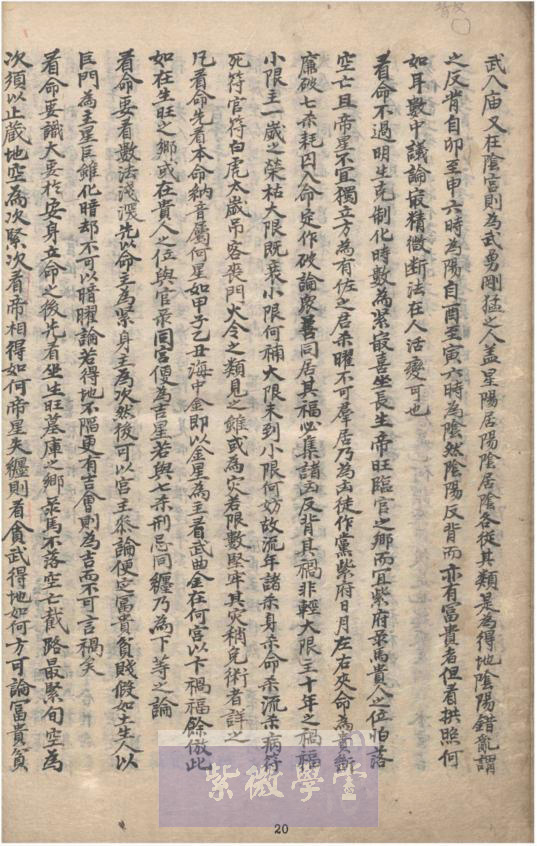 武入庙又在陰宫則為武勇剛猛之人盖星陽居陽陰居陰各從其類是為得地陰陽錯亂謂
之反背自卯至申六時為陽自酉至寅六時為陰然陰陽反背而亦有富貴者但看拱照何
如耳数中議論㝡精微断法在人活变可也
看命不過明生克制化時数為紧㝡喜坐長生帝旺臨官之鄉而宜紫府禄馬貴人之位怕落
空亡且帝星不宜獨立方為有佐之君杀曜不可羣居乃為凶徒作黨紫府日月左右夾命為貴断
廉破七杀耗囚入命定作破論衆善同居其福必集諸凶反背其禍非輕大限主十年之禍福
小限主一歲之榮枯大限既衰小限何補大限未到小限何妨故流年諸杀身杀命杀流杀病符
死符官符白虎太歲吊客喪門火令之類見之雖或為灾若限数堅牢其灾稍免術者詳之
凡看命先看本命納音屬何星如甲子乙丑海中金即以金星為主看武曲金在何宫以卞禍福餘倣此
如在生旺之鄉或在貴人之位與官禄同宫便為吉星若與七杀刑忌同纏乃為下等之論
看命要看数法淺深先以命主為紧身主為次然後可以宫主参論便定富貴貧賤假如土生人以
巨門為主星巨雖化暗却不可以暗曜論若得地不陷更有吉會則為吉而不可言禍矣
看命要識大要於安身立命之後先看坐生旺墓庫之鄉禄馬不落空亡截路最緊旬空為
次須以止蔵地空為次緊次看帝相得如何帝星失纏則看貪武得地如何方可論富貴貧
紫微學堂
20